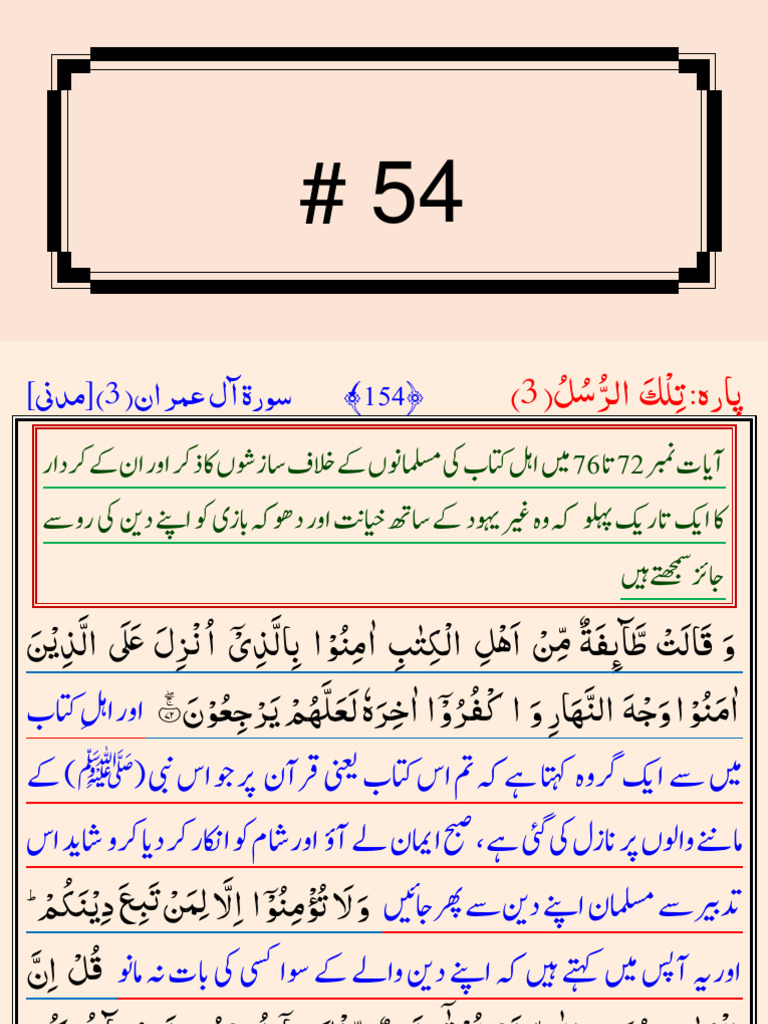 # 54
پارہ: تِلْكَ الرُّسُلُ (3) ﴿154﴾ سورة آل عمران (3) [مدنی]
آیات نمبر 72 تا 76 میں اہل کتاب کی مسلمانوں کے خلاف سازشوں کا ذکر اور ان کے کردار
کا ایک تاریک پہلو کہ وہ غیر یہود کے ساتھ خیانت اور دھوکہ بازی کو اپنے دین کی رو سے
جائز سمجھتے ہیں
وَ قَالَتْ طَّآىِٕفَةٌ مِّنْ اَهْلِ الْكِتٰبِ اٰمِنُوْا بِالَّذِیْۤ اُنْزِلَ عَلَى الَّذِیْنَ
اٰمَنُوْا وَجْهَ النَّهَارِ وَ اكْفُرُوْۤا اٰخِرَهٗ لَعَلَّهُمْ يَرْجِعُوْنَ ۚۖ۝۷۲ اور اہلِ کتاب
میں سے ایک گروہ کہتا ہے کہ تم اس کتاب یعنی قرآن پر جو اس نبی (ﷺ) کے
ماننے والوں پر نازل کی گئی ہے، صبح ایمان لے آؤ اور شام کو انکار کر دیا کرو شاید اس
تدبیر سے مسلمان اپنے دین سے پھر جائیں وَ لَا تُؤْمِنُوْۤا اِلَّا لِمَنْ تَبِعَ دِیْنَكُمْ ؕ
اور یہ آپس میں کہتے ہیں کہ اپنے دین والے کے سوا کسی کی بات نہ مانو قُلْ اِنَّ